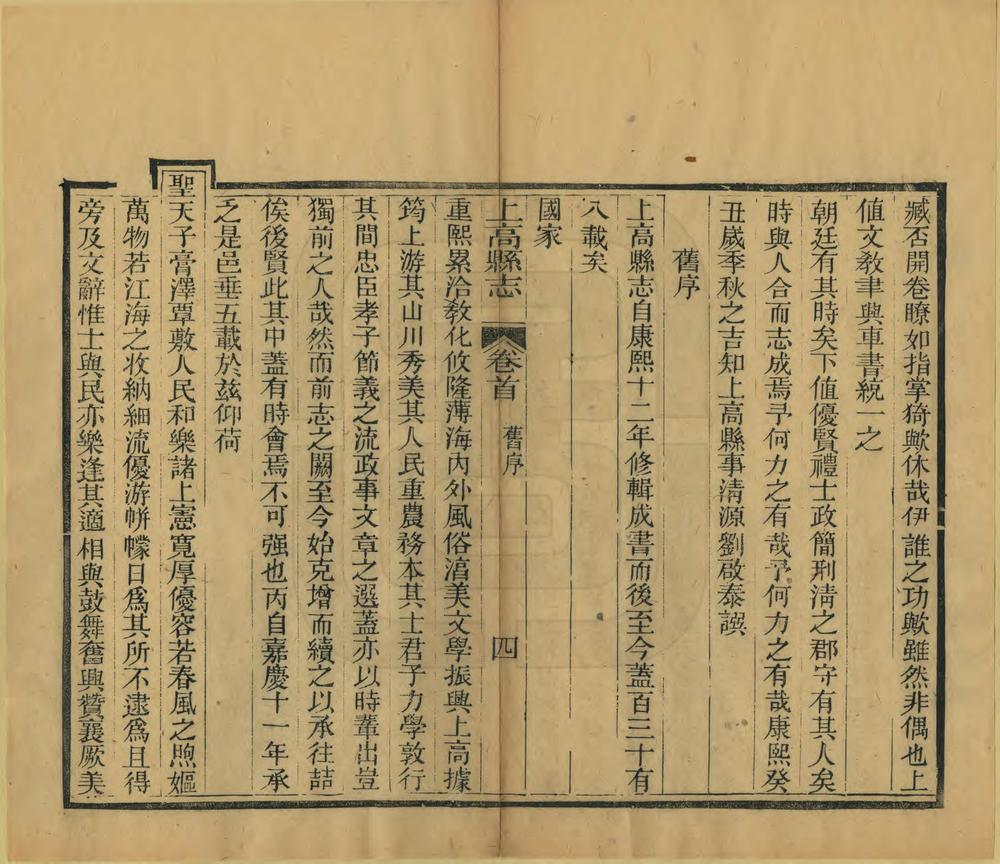 臧否開卷瞭如指掌猗歟休哉伊誰之功歟雖然非偶也上
值文敎聿興車書統一之
朝廷有其時矣下值優賢禮士政簡刑淸之郡守有其人矣
時與人合而志成焉予何力之有哉予何力之有哉康熙癸
丑歲季秋之吉知上高縣事淸源劉啟泰譔
舊序
上高縣志自康熙十二年修輯成書而後至今蓋百三十有
八載矣
國家
上高縣志 卷首 舊序 四
重熙累洽敎化攸隆薄海內外風俗湻美文學振興上高據
筠上游其山川秀美其人民重農務本其士君子力學敦行
其間忠臣孝子節義之流政事文章之選蓋亦以時輩出豈
獨前之人哉然而前志之闕至今始克增而續之以承往喆
俟後賢此其中蓋有時會焉不可强也丙自嘉慶十一年承
乏是邑垂五載於茲仰荷
聖天子膏澤覃敷人民和樂諸上憲寬厚優容若春風之煦嫗
萬物若江海之收納細流優游帡幪日爲其所不逮爲且得
旁及文辭惟士與民亦樂逢其適相與鼓舞奮興贊襄厥美